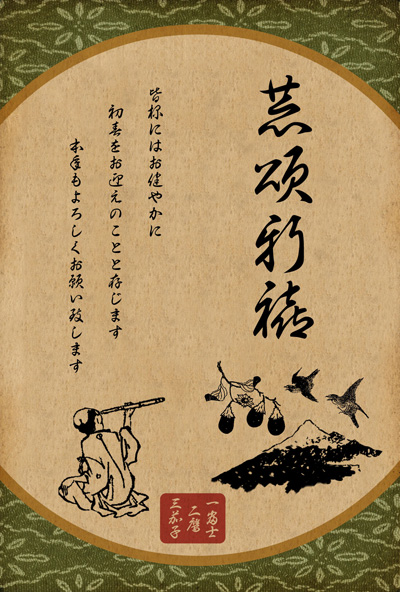 恭頌新禧
皆様にはお健やかに
初春をお迎えのことと存じます
本年もよろしくお願い致します
一富士
二鷹
三茄子